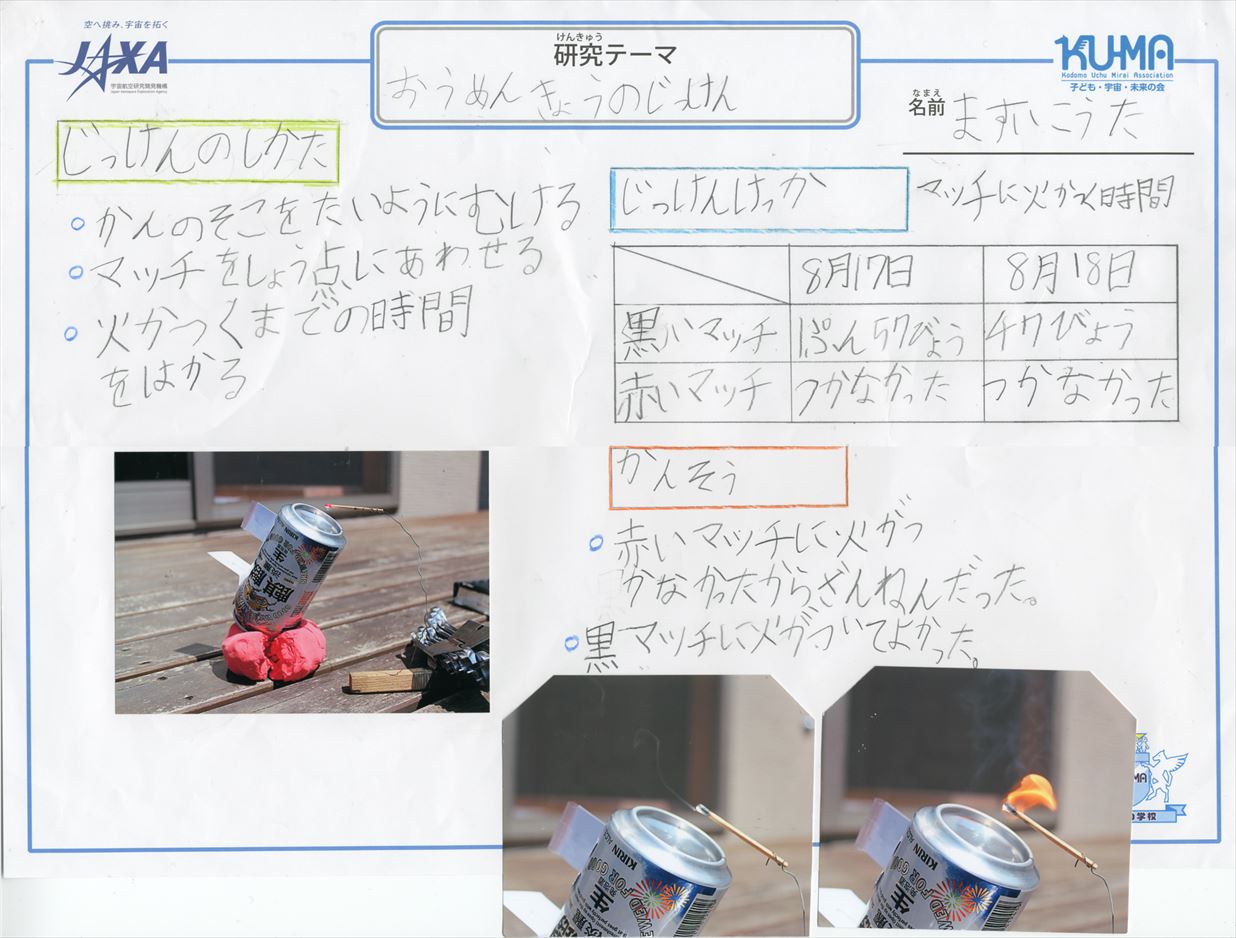 空へ挑み、宇宙を拓く
JAXA
宇宙航空研究開発機構
Japan Aerospace Exploration Agency
けんきゅう
研究テーマ
おうめんきょうのじっけん
KU-MA
Kodomo Uchu Mirai Association
子ども・宇宙・未来の会
なまえ
名前
ますいこうた
じっけんのしかた
かんのそこをたいようにむける
マッチをしょう点にあわせる
火がつくまでの時間
をはかる
じっけんけっか
マッチに火がつく時間
8月17日 8月18日
黒いマッチ 1ぷん57びょう 47びょう
赤いマッチ つかなかった つかなかった
かんそう
赤いマッチに火がつ
かなかったからざんねんだった。
黒マッチに火がついてよかった。
KIRIN
生
麒麟
KIRIN
生
KIRIN
生
MA
学校